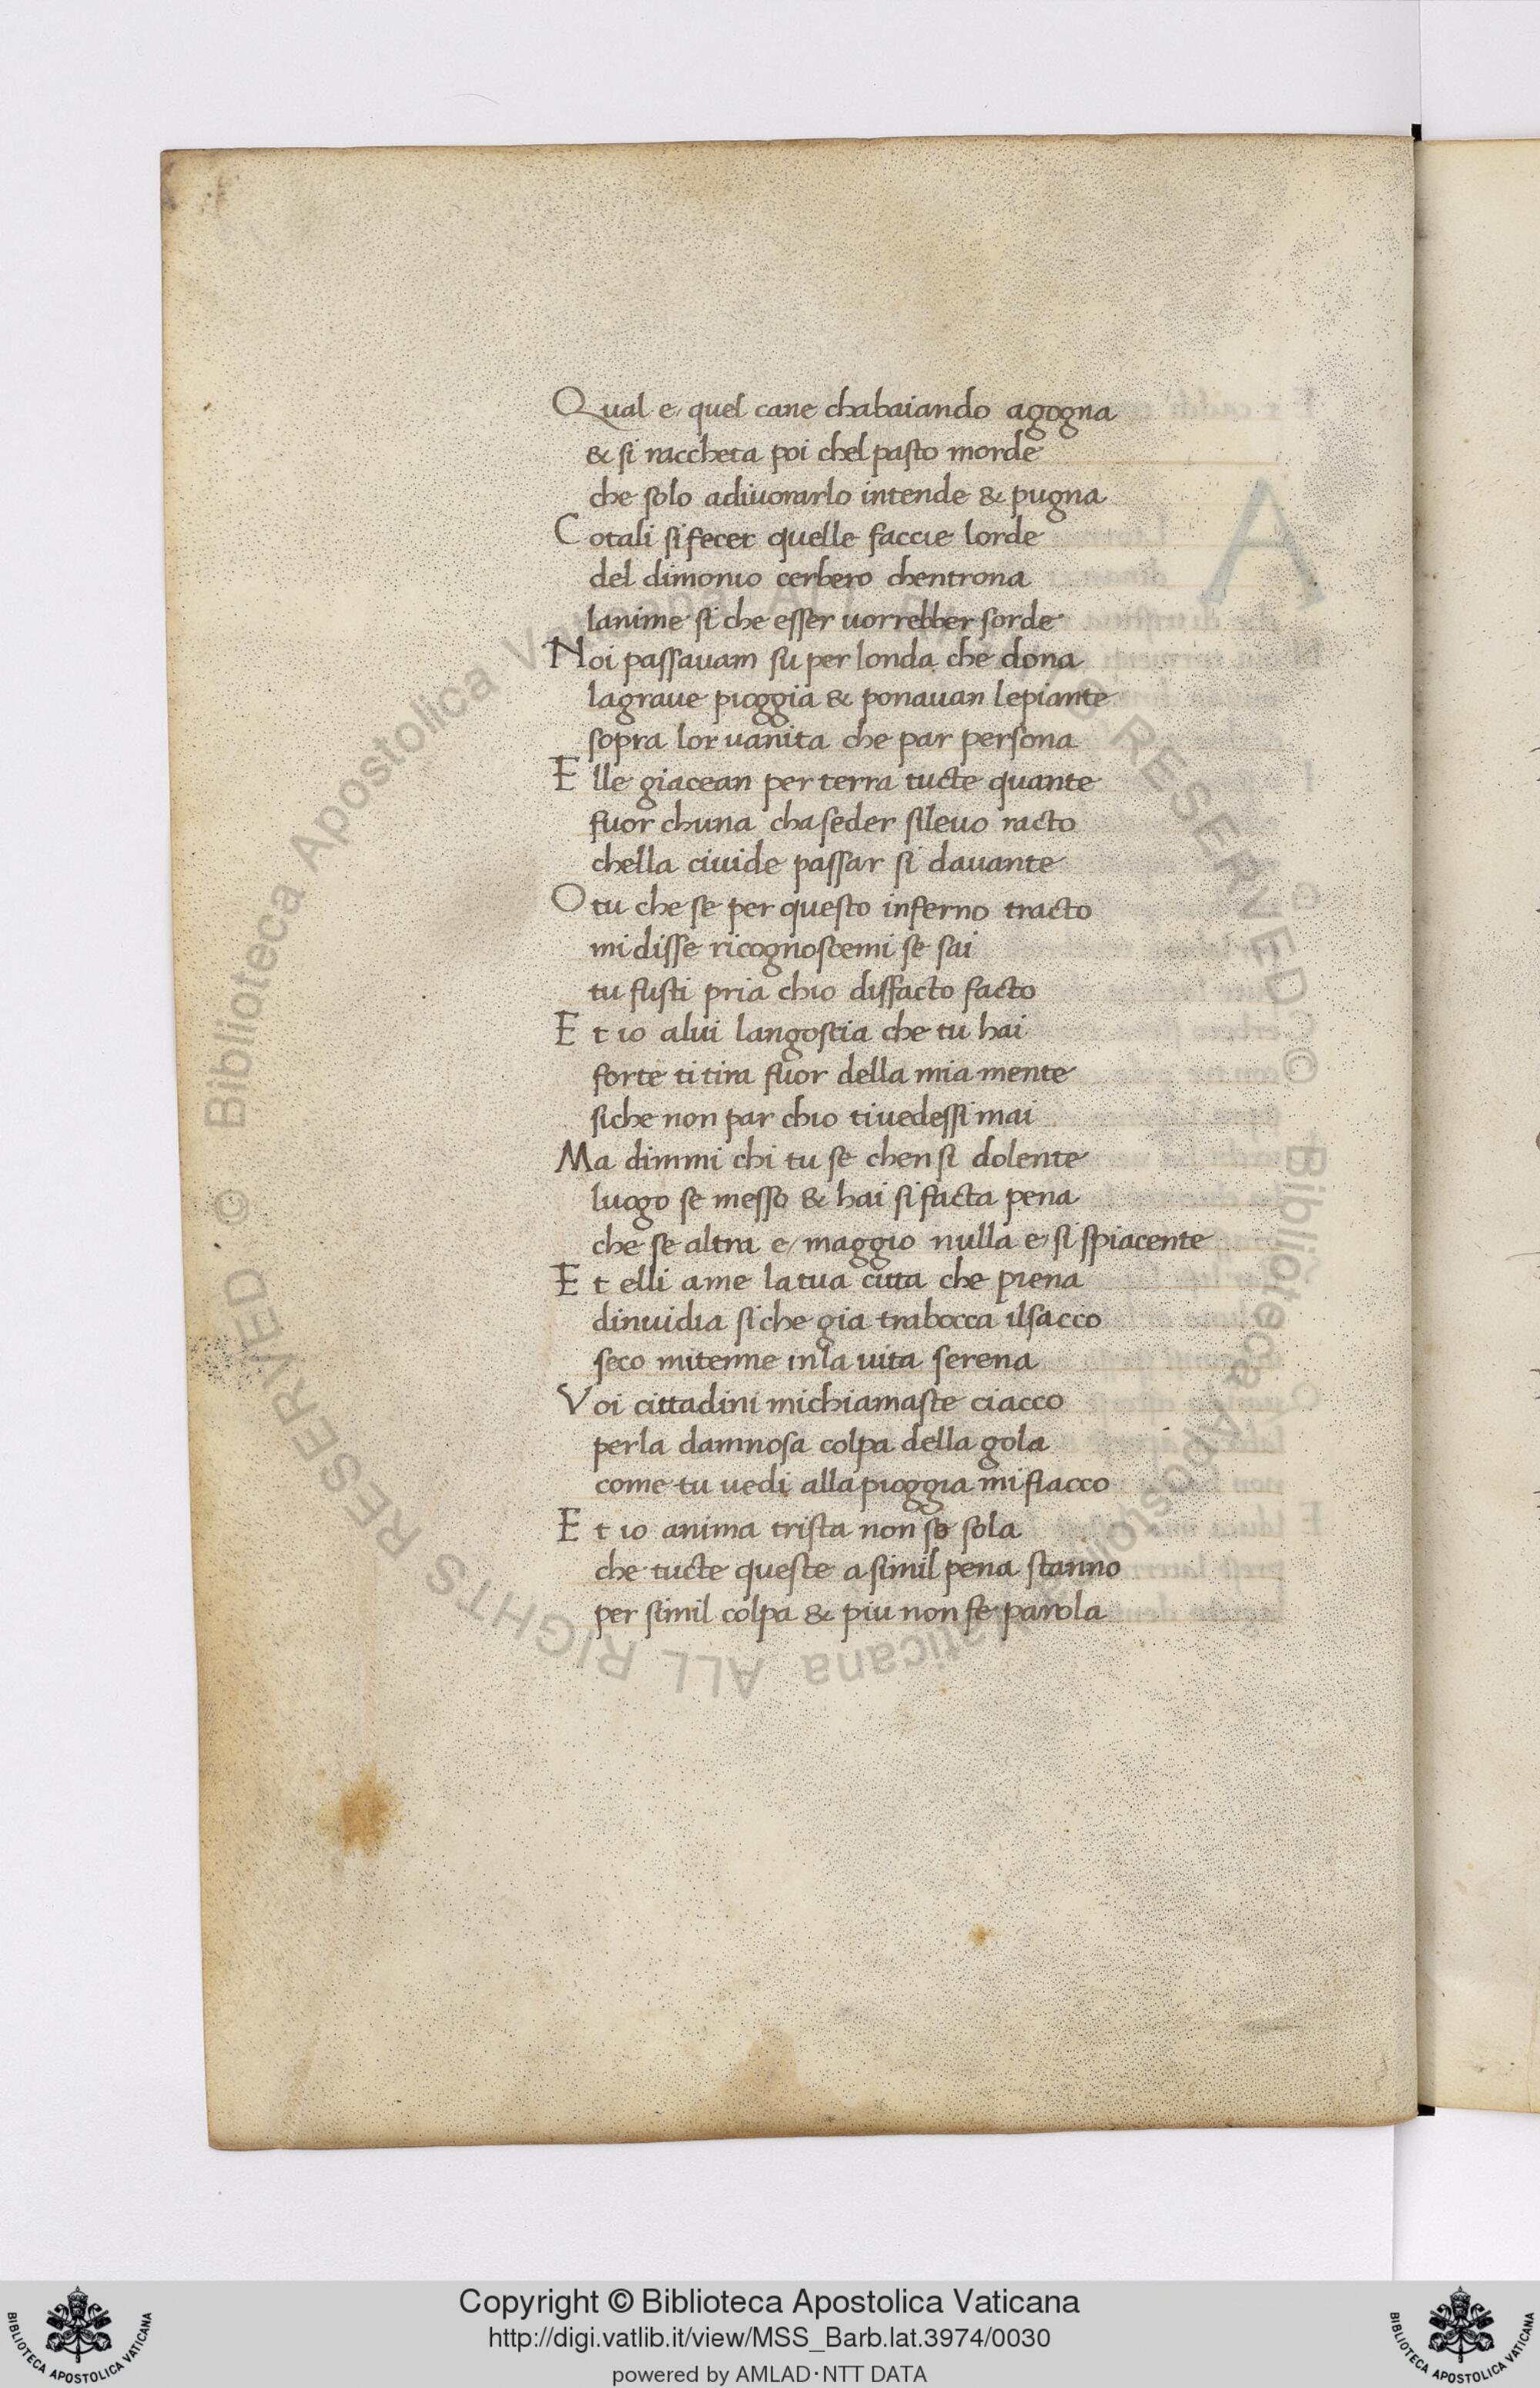 Qual e quel cane chabaiando agogna
& si raccheta poi chel pasto morde
che solo adiuorarlo intende & pugna
Cotali si fecer quelle faccie lorde
del dimonio cerbero chentrona
lanime si che esser uorrebber sorde
Noi passauam su per londa che dona
lagraue pioggia & ponauan lepiante
sopra lor uanita che par persona
Elle giacean per terra tucte quante
fuor chuna cha seder sileuo racto
chella ciuide passar si dauante
O tu che se per questo inferno tracto
mi disse ricognoscemi se sai
tu fusti pria chio disfacto facto
Et io alui langostia che tu hai
forte ti tira fuor della mia mente
siche non par chio tiuedessi mai
Ma dimmi chi tu se chen si dolente
luogo se messo & hai si facta pena
che se altra e maggio nulla e si spiacente
Et elli ame latua citta che piena
dinuidia si che gia trabocca ilsacco
seco mitenne inla uita serena
Voi cittadini michiamaste ciacco
perla damnosa colpa della gola
come tu uedi alla pioggia mi fiacco
Et io anima trista non so sola
che tucte queste a simil pena stanno
per simil colpa & piu non fe parola
Biblioteca Apostolica Vaticana ALL RIGHTS RESERVED © Biblioteca Apostolica Vaticana ALL RIGHTS RESERVED ©
Copyright © Biblioteca Apostolica Vaticana
http://digi.vatlib.it/view/MSS_Barb.lat.3974/0030
powered by AMLAD·NTT DATA
BIBLIOTECA APOSTOLICA VATICANA
BIBLIOTECA APOSTOLICA VATICANA